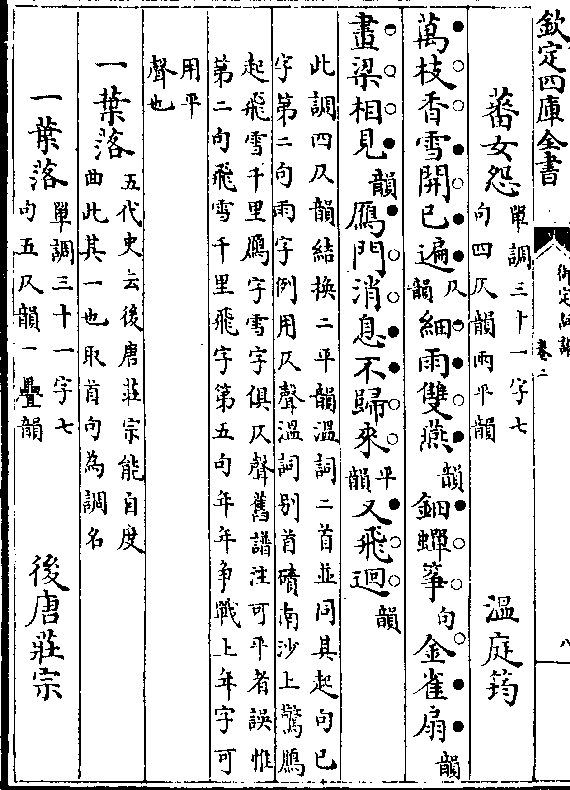 欽定四庫全書
御定詞譜
卷二
八
蕃女怨
單調三十一字七
句四仄韻兩平韻
溫庭筠
萬枝香雪開已遍仄韻細雨雙燕韻鈿蟬箏句金雀扇韻
畫梁相見韻鴈門消息不歸來平韻又飛迴韻
此調四仄韻結換二平韻溫詞二首並同其起句已
字第二句雨字例用仄聲溫詞别首磧南沙上驚鴈
起飛雪千里鴈字雪字俱仄聲舊譜注可平者誤惟
第二句飛雪千里飛字第五句年年爭戰上年字可
用平
聲也
一葉落
五代史云後唐莊宗能自度
曲此其一也取首句為調名
一葉落
單調三十一字七
句五仄韻一疊韻
後唐莊宗